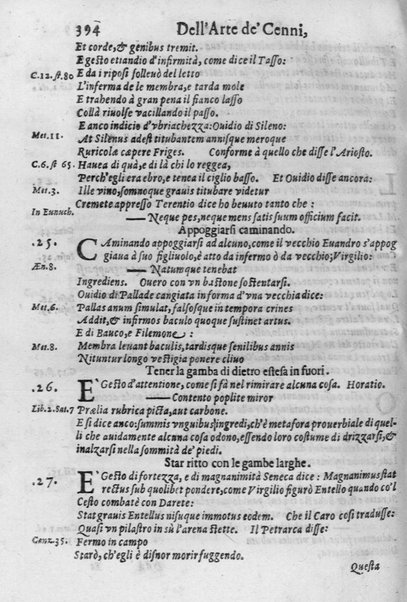 394 Dell'Arte de' Cenni,
Et corde, & genibus tremit.
E gesto etiandio d'infirmità, come dice il Tasso:
C.12. st. 80 E da i riposi solleuò del letto
L'inferma de le membra, e tarda mole
E trahendo à gran pena il fianco lasso
Colà riuolse vacillando il passo.
E anco indicio d'vbriachezza: Ouidio di Sileno:
Met. 11. At Silenus adest titubantem annisque meroque
Ruricolæ cæpere Friges. Conforme à quello che disse l'Ariosto.
C.6. st 65. Hauea di quà, e di là chi lo reggea,
Perch'egli era ebro, e tenea il ciglio basso. Et Ouidio disse ancora:
Met. 3. Ille vino, somnoque grauis titubare videtur
Cremete appresso Terentio dice ho beuuto tanto che:
In Eunuch. —— Neque pes, neque mens satis suum officium facit.
Appoggiarsi caminando.
.25. CAminando appoggiarsi ad alcuno, come il vecchio Euandro s'appog
giaua à suo figliuolo, è atto da infermo ò da vecchio; Virgilio:
Æn. 8. —— Natumque tenebat
Ingrediens. Ouero con vn bastone sostentarsi.
Ouidio di Pallade cangiata informa d'vna vecchia dice:
Met. 6. Pallas anum simulat, falsosque in tempora crines
Addit, & infirmos baculo quoque sustinet artus.
E di Bauco, e Filemone:
Met. 8. Membra leuant baculis, tardisque senilibus annis
Nituntur longo vestigia ponere cliuo
Tener la gamba di dietro estesa in fuori.
.26. E' Gesto d'attentione, come si fà nel rimirare alcuna cosa. Horatio.
—— Contento poplite miror
Lib. 2. Sat. 7 Prælia rubrica picta, aut carbone.
E si dice anco: summis vnguibus ingredi, ch'è metafora prouerbiale di quel-
li che auidamente alcuna cosa odono, essendo loro costume di drizzarsi, &
inalzarsi nella sommità de' piedi.
Star ritto con le gambe larghe.
.27. E' Gesto di fortezza, e di magnanimità Seneca dice: Magnanimus stat
rectus sub quolibet pondere, come Virgilio figurò Entello quando co'l
Cesto combatè con Darete:
Stat grauis Entellus nisuque immotus eodem. Che il Caro cosi tradusse:
Quasi vn pilastro in sù l'arena stette. Il Petrarca disse:
Canz. 35. Fermo in campo
Starò, ch'egli è disnor morir fuggendo.
Questa